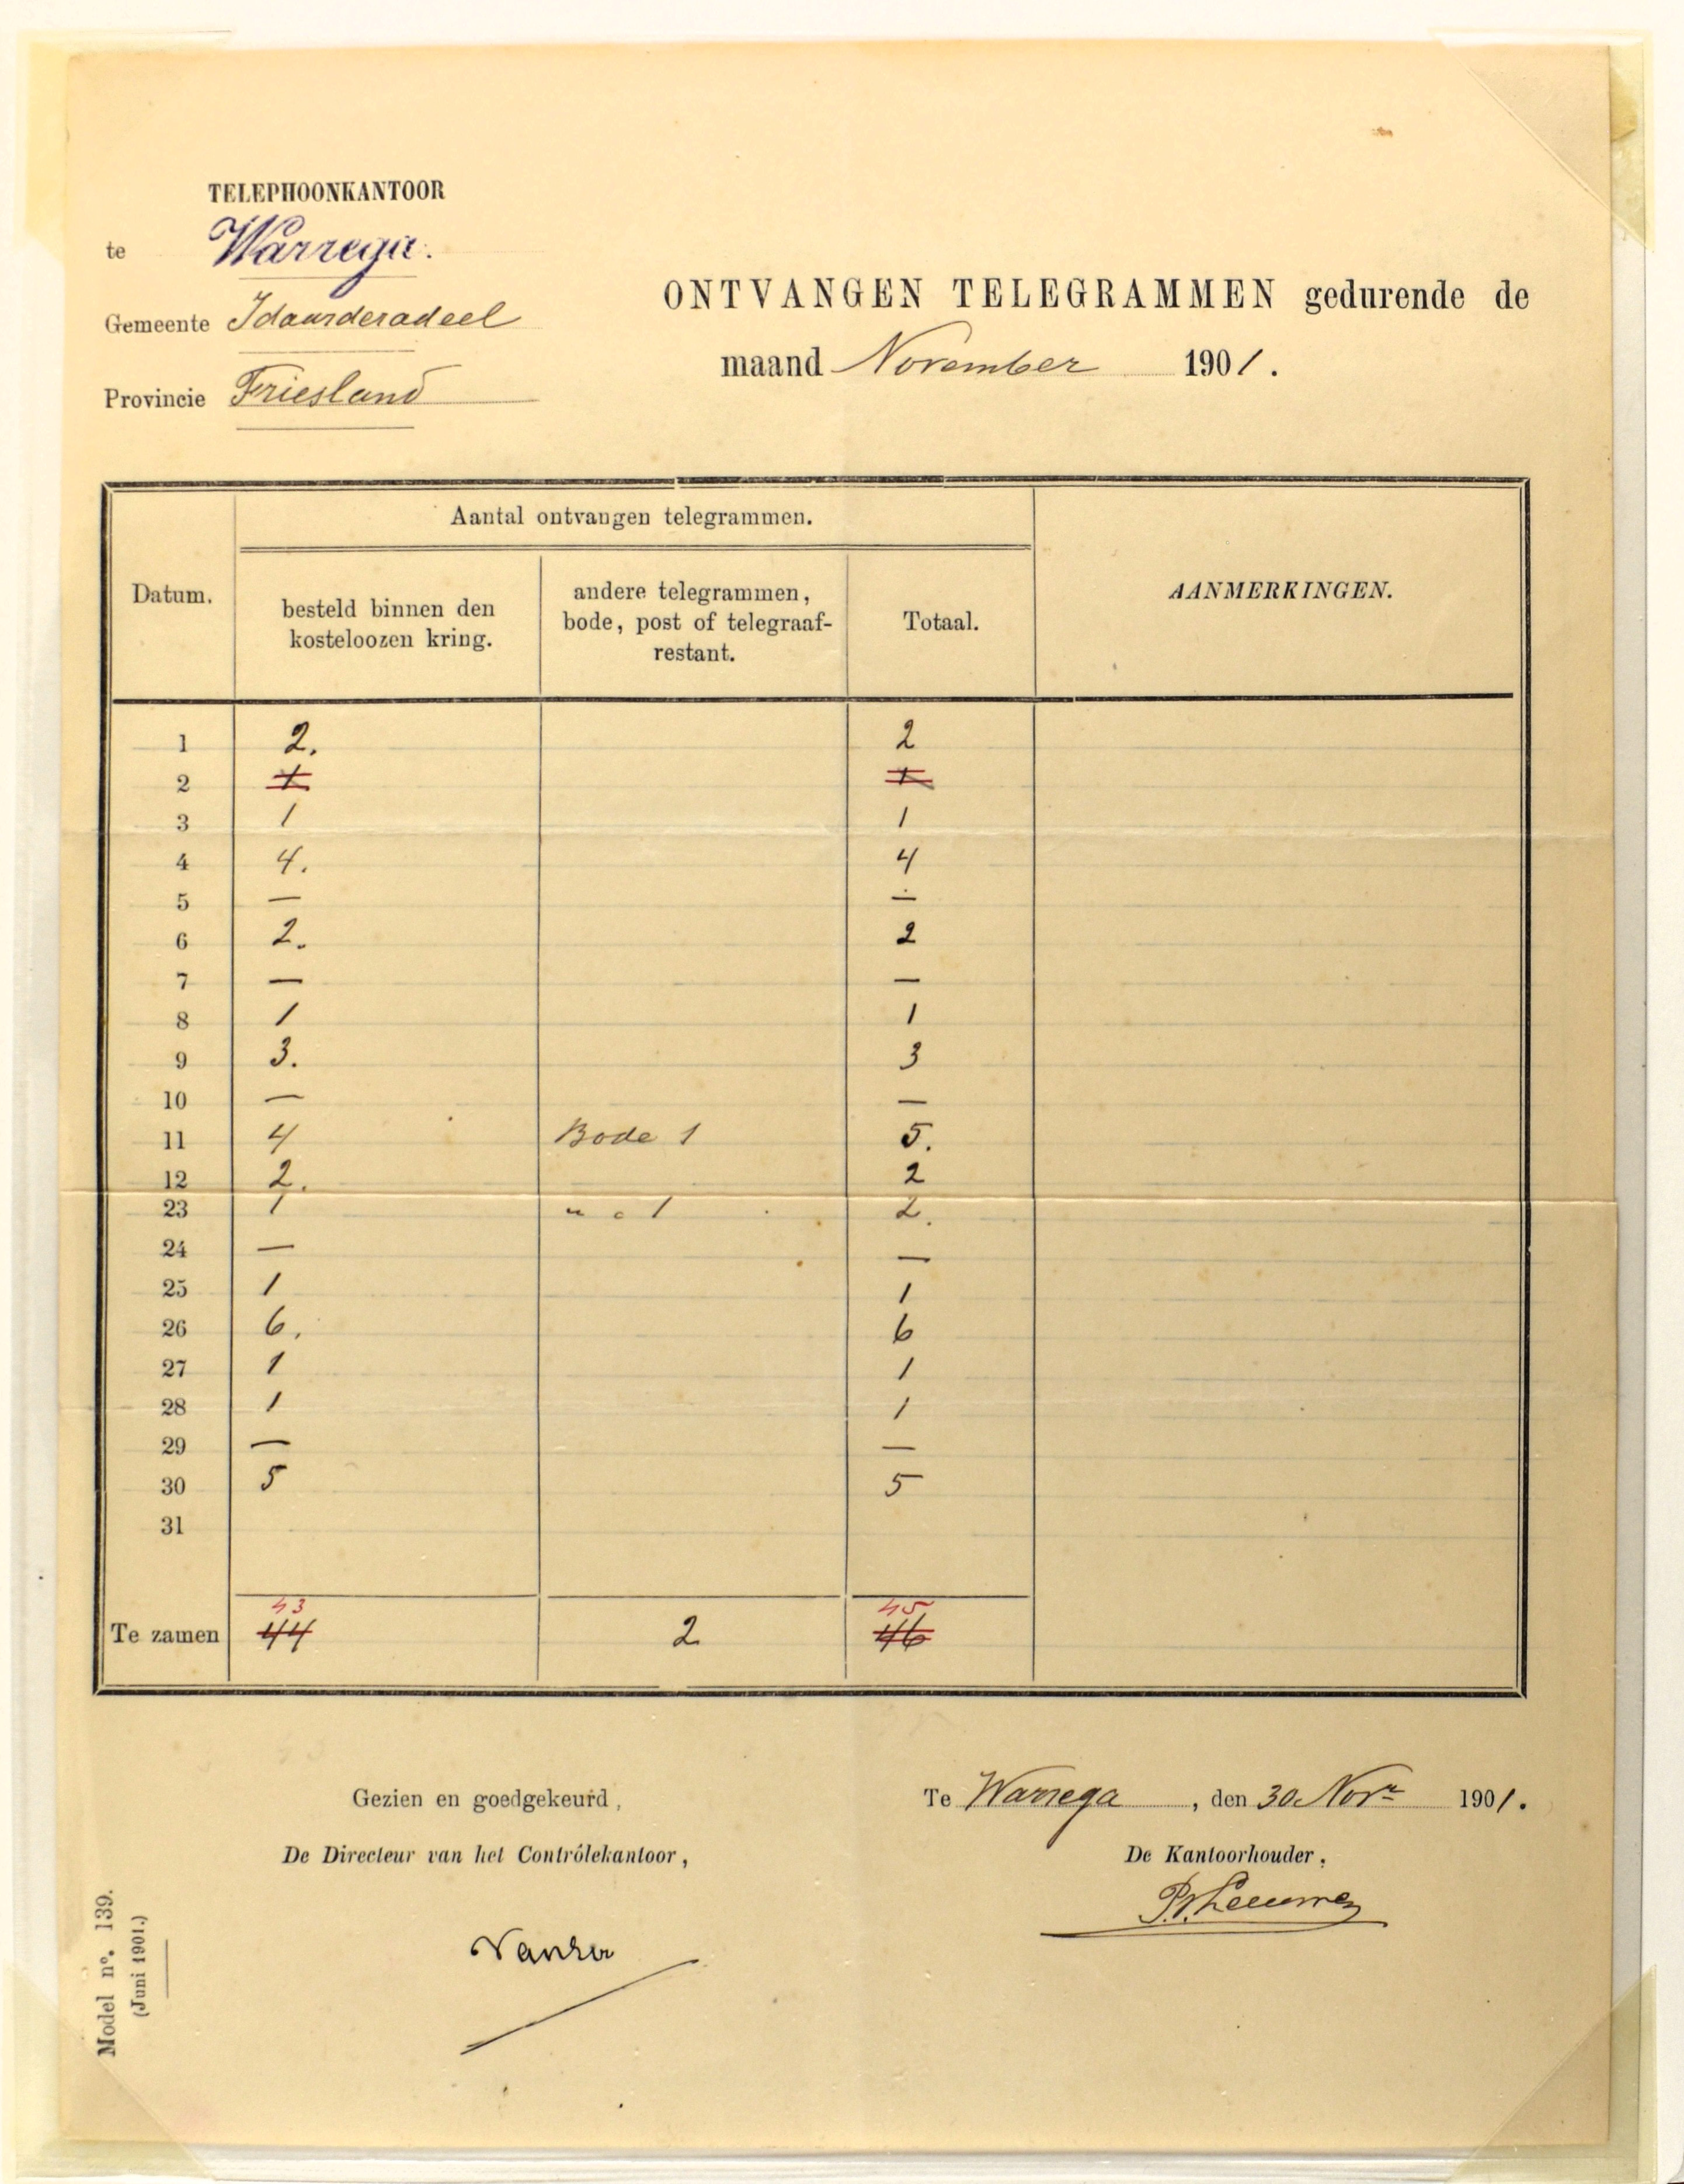 TELEPHOONKANTOOR
te Warrega.
Gemeente Idaarderadeel
Provincie Friesland
ONTVANGEN TELEGRAMMEN gedurende de
maand November 1901.
Aantal ontvangen telegrammen.
Datum.
besteld binnen den kosteloozen kring.
andere telegrammen, bode, post of telegraaf-restant.
Totaal.
AANMERKINGEN.
1 2. 2
2 1 1
3 1 1
4 4. 4
5 — —
6 2. 2
7 — —
8 1 1
9 3. 3
10 — —
11 4 Bode 1 5.
12 2. 2
23 1 " " 1 2.
24 — —
25 1 1
26 6. 6
27 1 1
28 1 1
29 — —
30 5 5
31
43 45
Te zamen 44 2 46
Gezien en goedgekeurd,
De Directeur van het Contrôlekantoor,
Te Warrega, den 30 Nov^r 1901.
De Kantoorhouder,
Model n°. 139.
(Juni 1901.)